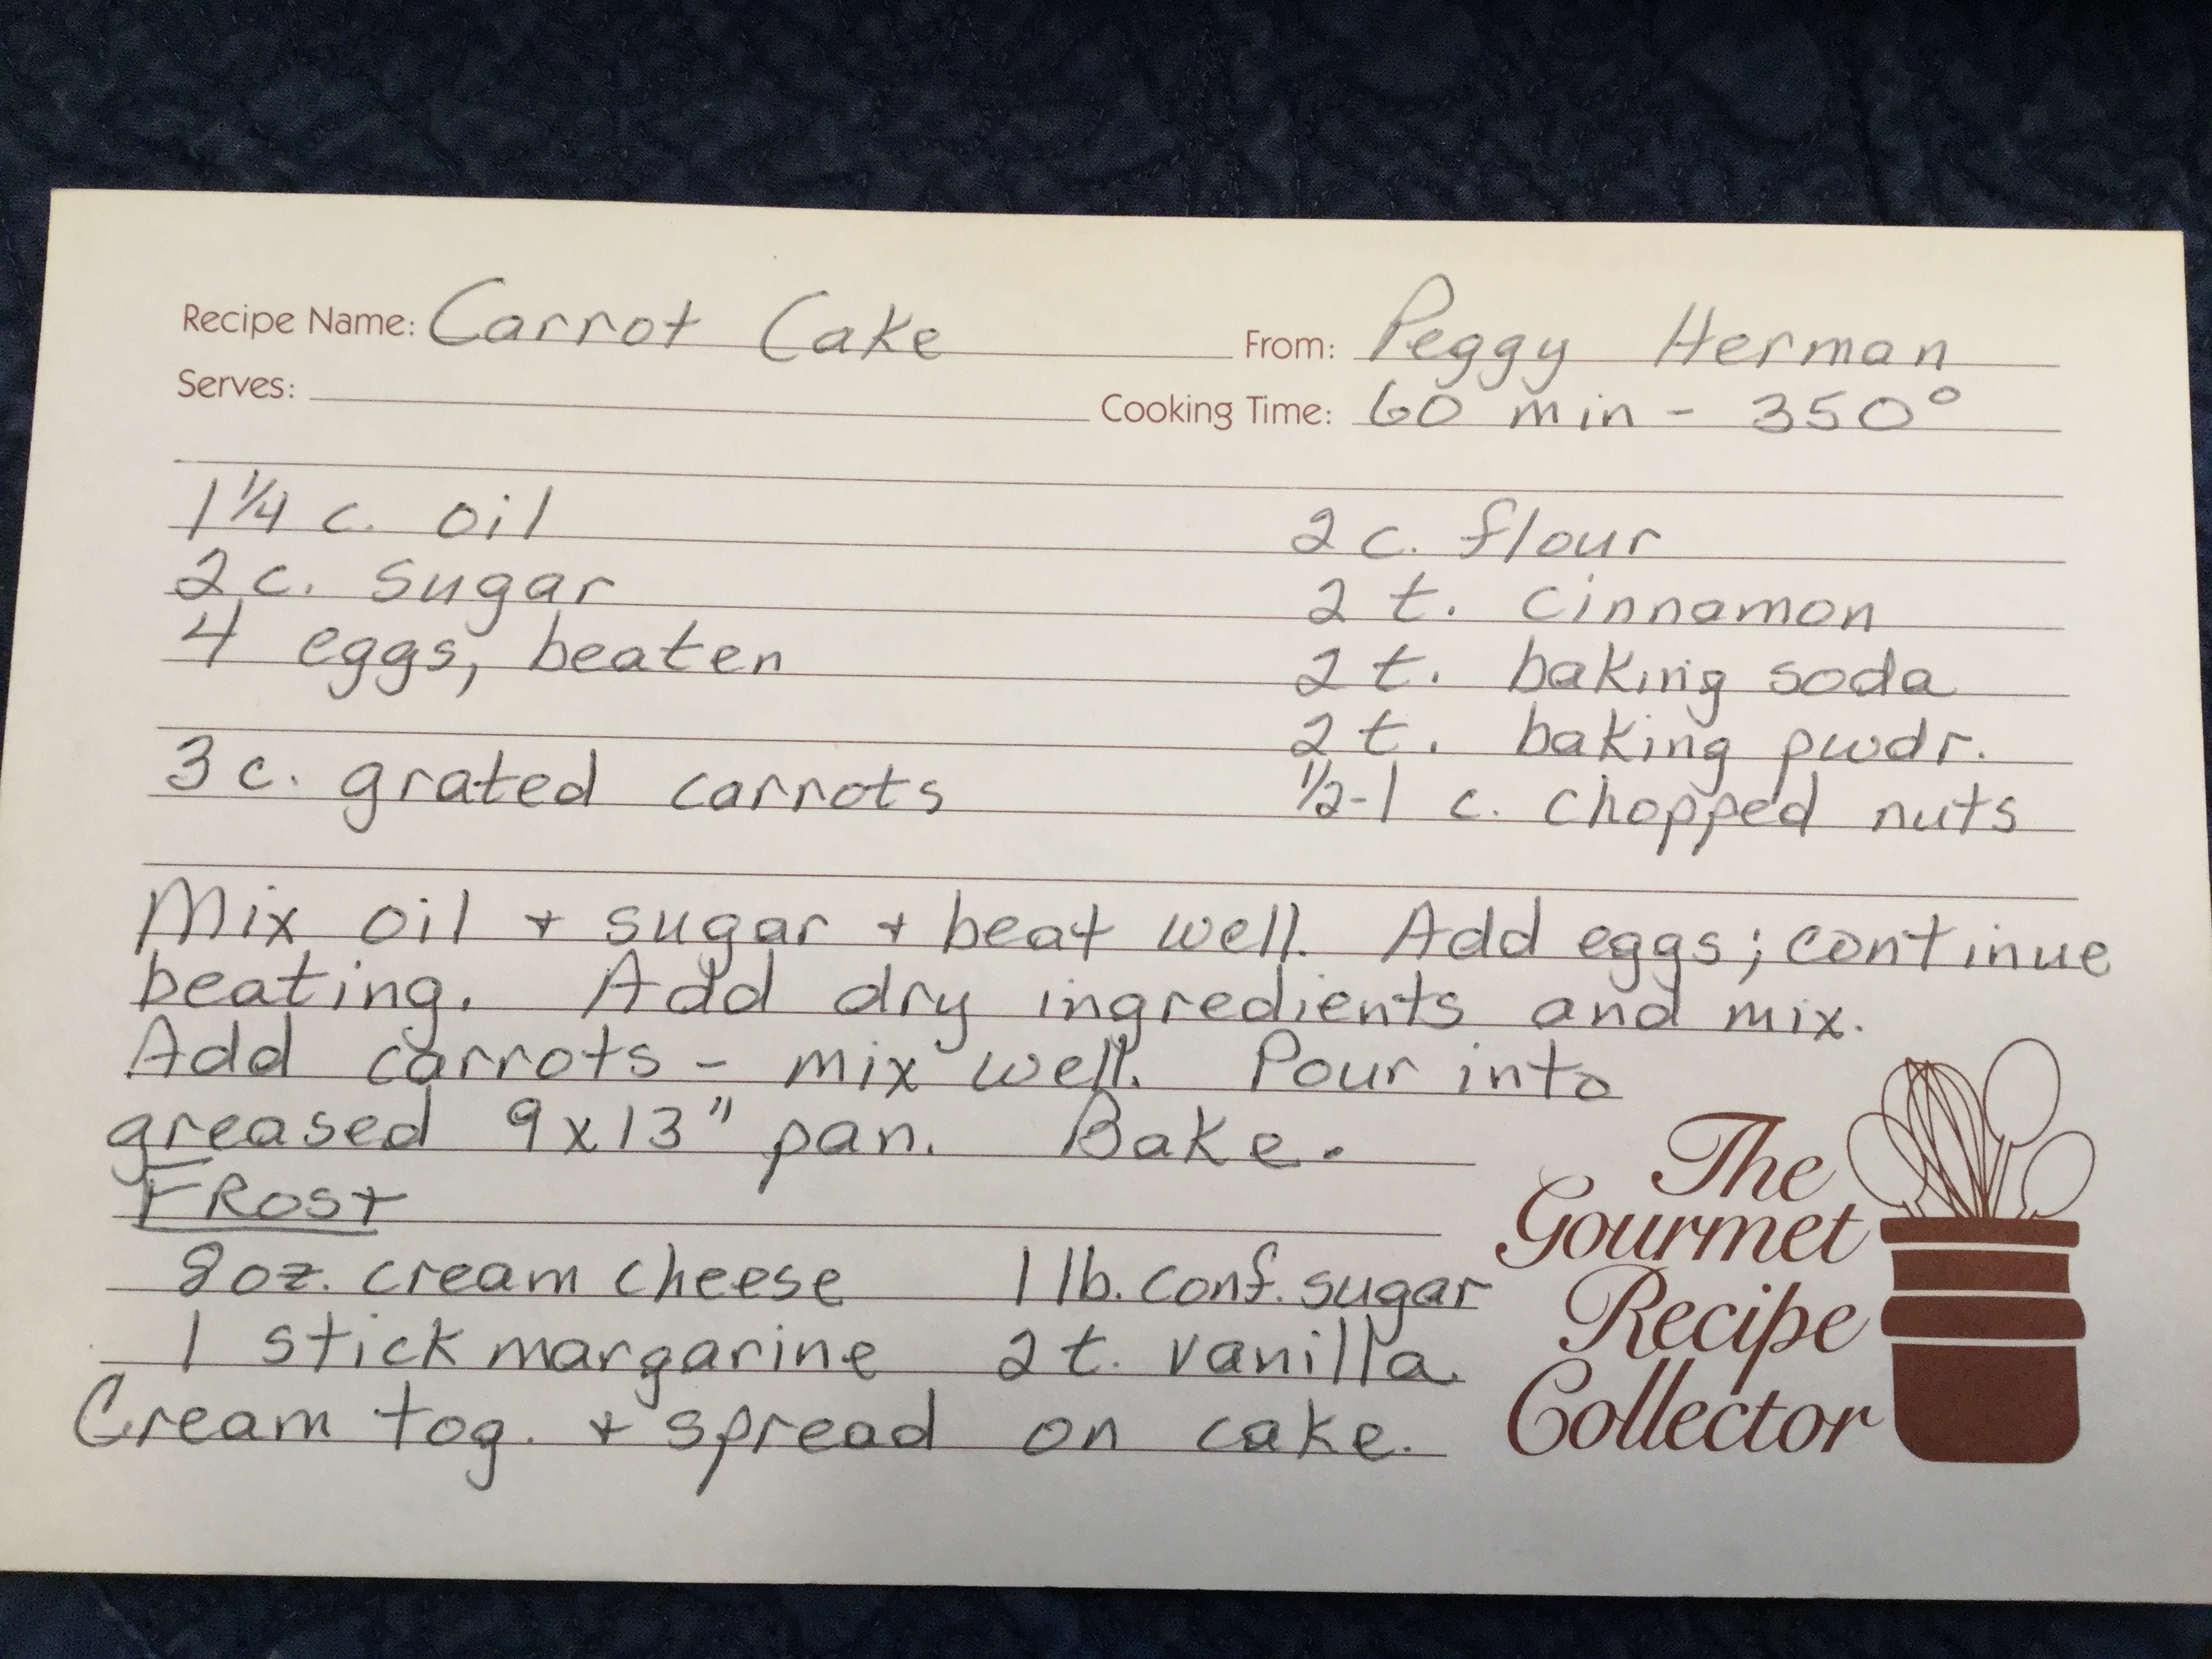 Recipe Name: Carrot Cake From: Peggy Herman
Serves: Cooking Time: 60 min - 350°
1 1/4 c. oil 2 c. flour
2 c. sugar 2 t. cinnamon
4 eggs, beaten 2 t. baking soda
2 t. baking pwdr.
3 c. grated carrots 1/2-1 c. chopped nuts
Mix oil + sugar + beat well. Add eggs; continue
beating. Add dry ingredients and mix.
Add carrots - mix well. Pour into
greased 9x13" pan. Bake.
FROST
8 oz. cream cheese 1 lb. conf. sugar
1 stick margarine 2 t. vanilla
Cream tog. + spread on cake.
The
Gourmet
Recipe
Collector